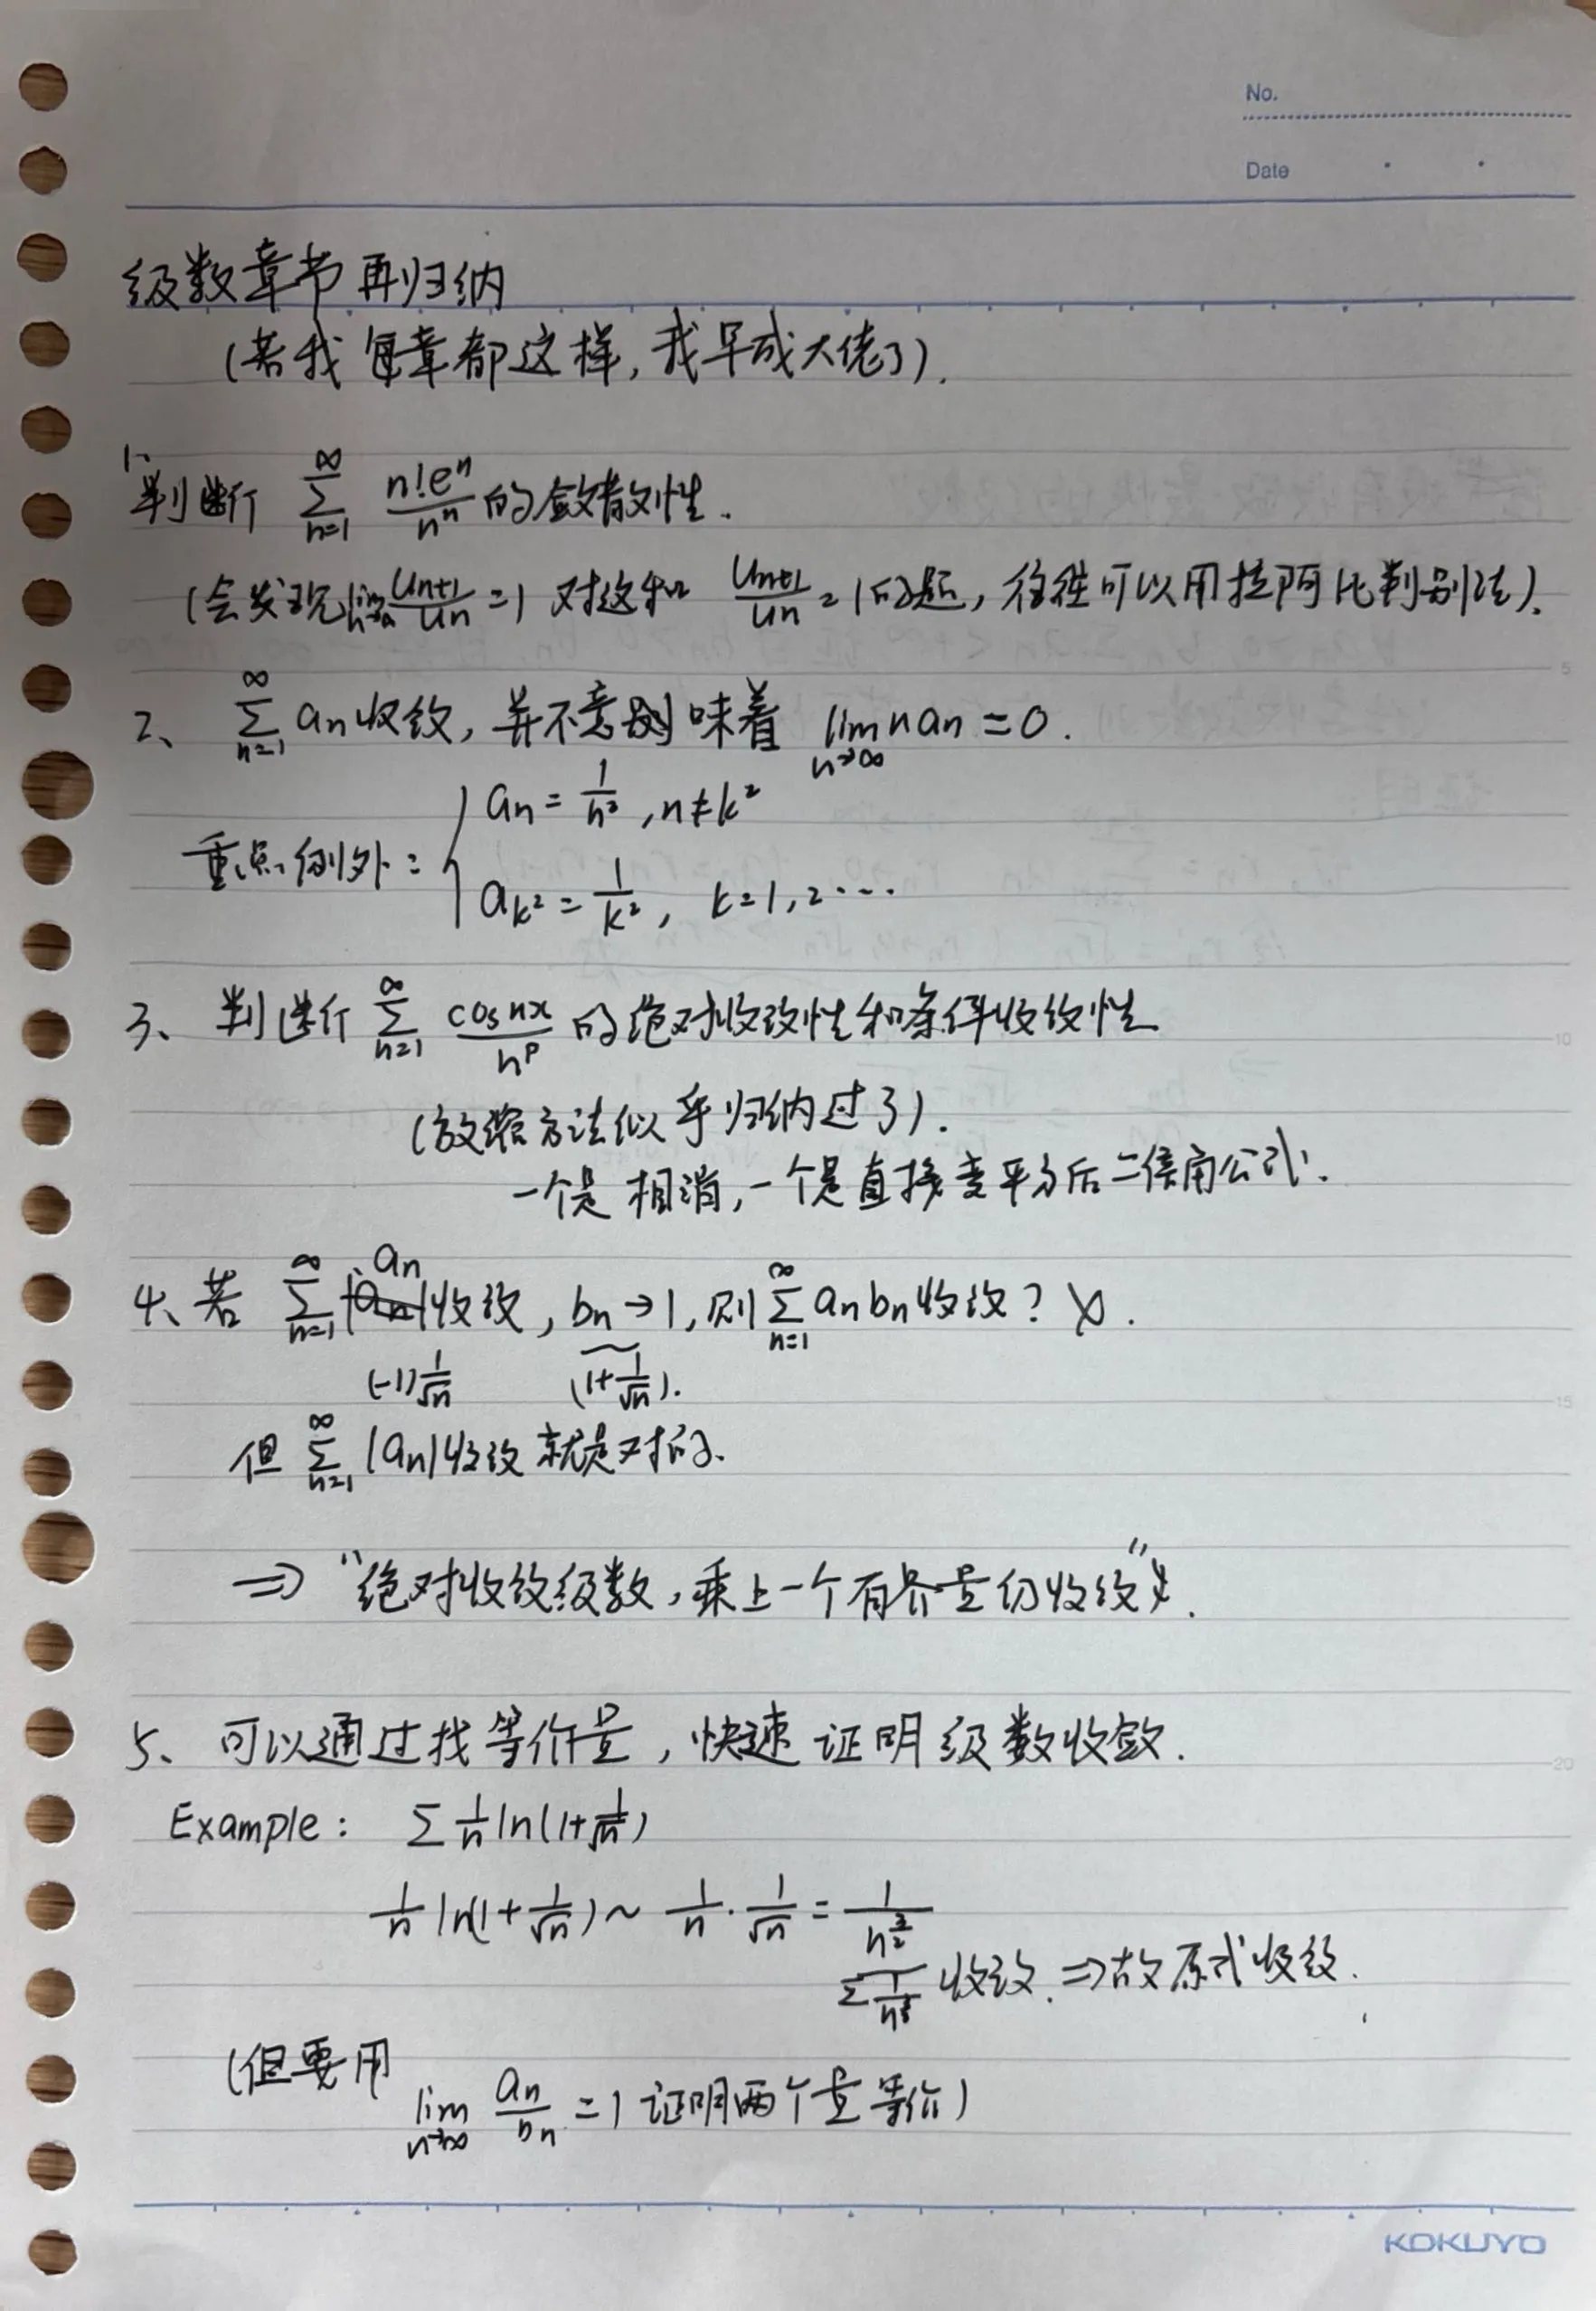 No.
Date
级数章节再归纳
(若我每章都这样,我早成大佬了).
1、判断 ∑_{n=1}^{∞} n!eⁿ/nⁿ 的敛散性.
(会发现 lim_{n→∞} U_{n+1}/U_n =1 对这种 U_{n+1}/U_n =1的题,往往可以用拉阿比判别法).
2、 ∑_{n=1}^{∞} a_n 收敛,并不意味着 lim_{n→∞} n a_n =0.
重点例外: { a_n = 1/n², n≠k²
a_{k²} = 1/k², k=1,2···
3、判断 ∑_{n=1}^{∞} cos nx/n^p 的绝对收敛性和条件收敛性
(放缩方法似乎归纳过了).
一个是相消,一个是直接变平方后二倍角公式.
4、若 ∑_{n=1}^{∞} a_n 收敛, b_n→1, 则 ∑_{n=1}^{∞} a_n b_n 收敛? ×.
(-1) 1/√n (1+ 1/√n).
但 ∑_{n=1}^{∞} |a_n| 收敛就是对的.
⇒ "绝对收敛级数,乘上一个有界量仍收敛".
5、可以通过找等价量,快速证明级数收敛.
Example: ∑ 1/n ln(1+ 1/√n)
1/n ln(1+ 1/√n) ~ 1/n · 1/√n = 1/n^{3/2}
∑ 1/n^{3/2} 收敛. ⇒故原式收敛.
(但要用 lim_{n→∞} a_n/b_n =1 证明两个量等价)
KOKUYO